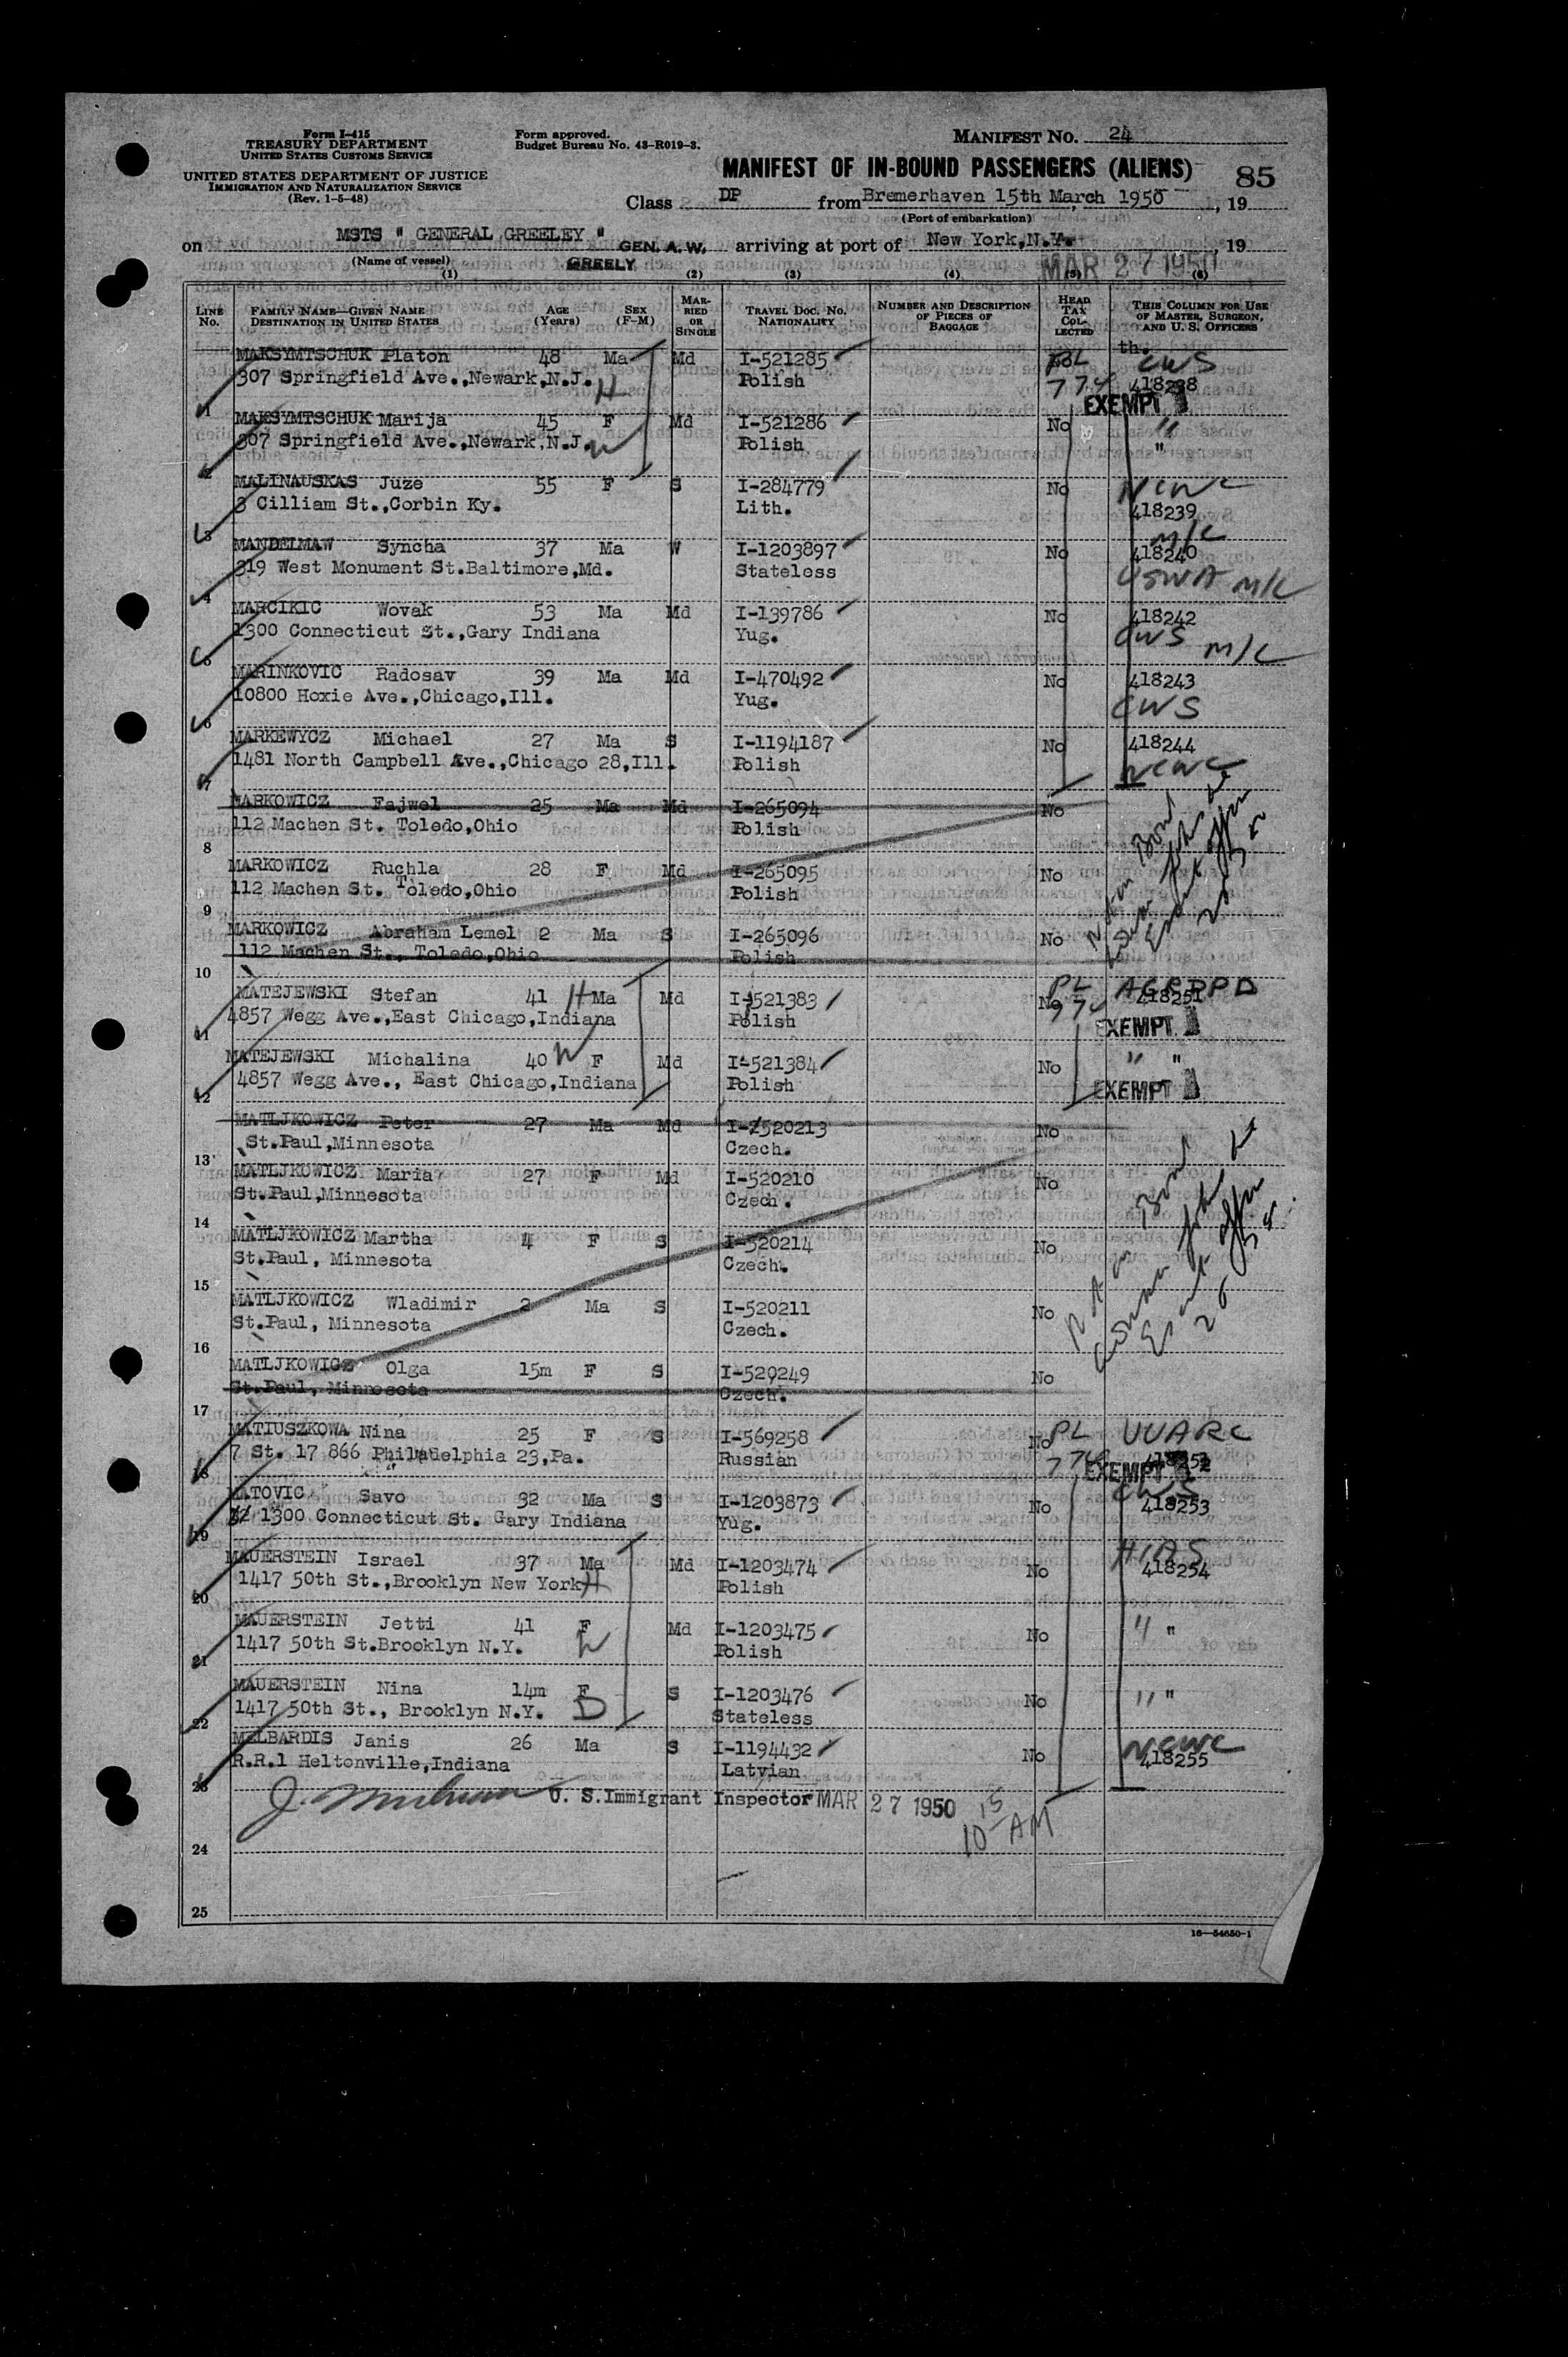 Form I-415
TREASURY DEPARTMENT
UNITED STATES CUSTOMS SERVICE
UNITED STATES DEPARTMENT OF JUSTICE
IMMIGRATION AND NATURALIZATION SERVICE
(Rev. 1-5-48)
Form approved.
Budget Bureau No. 43-R019-3.
MANIFEST NO. 24
MANIFEST OF IN-BOUND PASSENGERS (ALIENS) 85
Class DP from Bremerhaven 15th March 1950, 19
(Port of embarkation)
on MSTS " GENERAL GREELEY " GEN. A. W. GREELY arriving at port of New York,N.Y. 19
(Name of vessel)
MAR 27 1950
(1) (2) (3) (4) (5) (6)
LINE No. FAMILY NAME—GIVEN NAME DESTINATION IN UNITED STATES AGE (Years) SEX (F-M) MARRIED OR SINGLE TRAVEL DOC. NO. NATIONALITY NUMBER AND DESCRIPTION OF PIECES OF BAGGAGE HEAD TAX COLLECTED THIS COLUMN FOR USE OF MASTER, SURGEON, AND U. S. OFFICERS
th.
MAKSYMTSCHUK Platon 48 Ma Md I-521285 PL CWS
307 Springfield Ave.,Newark,N.J. H Polish 774 418238
1 EXEMPT
MAKSYMTSCHUK Marija 45 F Md I-521286 No "
307 Springfield Ave.,Newark,N.J. W Polish "
2
MALINAUSKAS Juze 55 F S I-284779 No NCWC
3 Cilliam St.,Corbin Ky. Lith. 418239
3 M/C
MANDELMAW Syncha 37 Ma W I-1203897 No 418240
319 West Monument St.Baltimore,Md. Stateless USNA M/C
4
MARCIKIC Wovak 53 Ma Md I-139786 No 418242
1300 Connecticut St.,Gary Indiana Yug. CWS M/C
5
MARINKOVIC Radosav 39 Ma Md I-470492 No 418243
10800 Hoxie Ave.,Chicago,Ill. Yug. CWS
6
MARKEWYCZ Michael 27 Ma S I-1194187 No 418244
1481 North Campbell Ave.,Chicago 28,Ill. Polish NCWC
7
MARKOWICZ Fajwel 25 Ma Md I-265094 No
112 Machen St. Toledo,Ohio Polish
8
MARKOWICZ Ruchla 28 F Md I-265095 No
112 Machen St. Toledo,Ohio Polish
9
MARKOWICZ Abraham Lemel 2 Ma S I-265096 No
112 Machen St., Toledo,Ohio Polish
10
MATEJEWSKI Stefan 41 H Ma Md I-521383 No PL AGRDPD
4857 Wegg Ave.,East Chicago,Indiana Polish 774 418251
11 EXEMPT
MATEJEWSKI Michalina 40 W F Md I-521384 No " "
4857 Wegg Ave., East Chicago,Indiana Polish EXEMPT
12
MATLJKOWICZ Peter 27 Ma Md I-520213 No
St.Paul,Minnesota Czech.
13
MATLJKOWICZ Maria 27 F Md I-520210 No
St.Paul,Minnesota Czech.
14
MATLJKOWICZ Martha 4 F S I-520214 No
St.Paul, Minnesota Czech.
15
MATLJKOWICZ Wladimir 2 Ma S I-520211 No
St.Paul, Minnesota Czech.
16
MATLJKOWICZ Olga 15m F S I-520249 No
St.Paul, Minnesota Czech.
17
MATIUSZKOWA Nina 25 F S I-569258 No PL UUARC
7 St. 17 866 Philadelphia 23,Pa. Russian 774 418252
18 EXEMPT
MATOVIC Savo 32 Ma S I-1203873 No CWS 418253
1300 Connecticut St. Gary Indiana Yug.
19
MAUERSTEIN Israel 37 Ma Md I-1203474 No HIAS 418254
1417 50th St.,Brooklyn New York H Polish
20
MAUERSTEIN Jetti 41 F Md I-1203475 No " "
1417 50th St.Brooklyn N.Y. W Polish
21
MAUERSTEIN Nina 14m F S I-1203476 No " "
1417 50th St., Brooklyn N.Y. D Stateless
22
MELBARDIS Janis 26 Ma S I-1194432 No NCWC 418255
R.R.1 Heltonville,Indiana Latvian
23
U. S.Immigrant Inspector MAR 27 1950 10 15 AM
24
25
16—54650-1